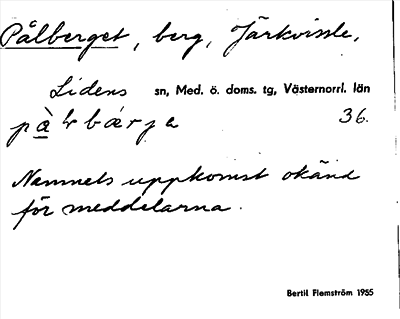 Pålberget, berg, Järkvissle,
Lidens sn, Med. ö. doms. tg, Västernorrl. län
36.
Namnets uppkomst okänd
för meddelarna.
Bertil Flemström 1955